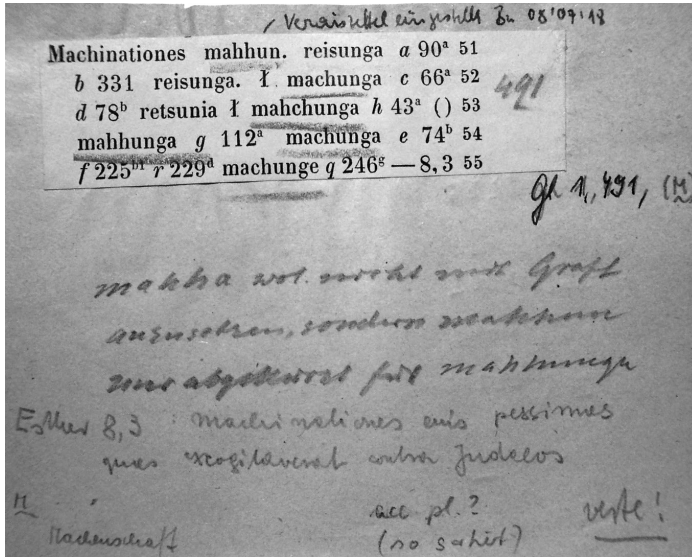 Verweiszettel eingestellt Bu 08'07'18
Machinationes mahhun. reisunga a 90ᵃ 51
b 331 reisunga. ł. machunga c 66ᵃ 52
d 78ᵇ retsunia ł mahchunga h 43ᵃ () 53
491
mahhunga g 112ᵃ machunga e 74ᵇ 54
f 225ᵇ¹ r 229ᵈ machunge q 246ᵍ — 8, 3 55
Gl 1, 491, (M)
mahha wol. nicht mit Graff
anzusetzen, sondern mahhun
nur abgekürzt für mahhunga
Esther 8,3 : machinationes eius pessimas
quas excogitaverat contra Judaeos
M acc pl.? verte!
Machenschaft (so Schirt)